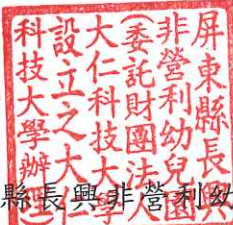 屏東縣長興
非營利幼兒園
(委託財團法人
大仁科技大學
設立之大仁
科技大學辦理)
縣長興非營利幼